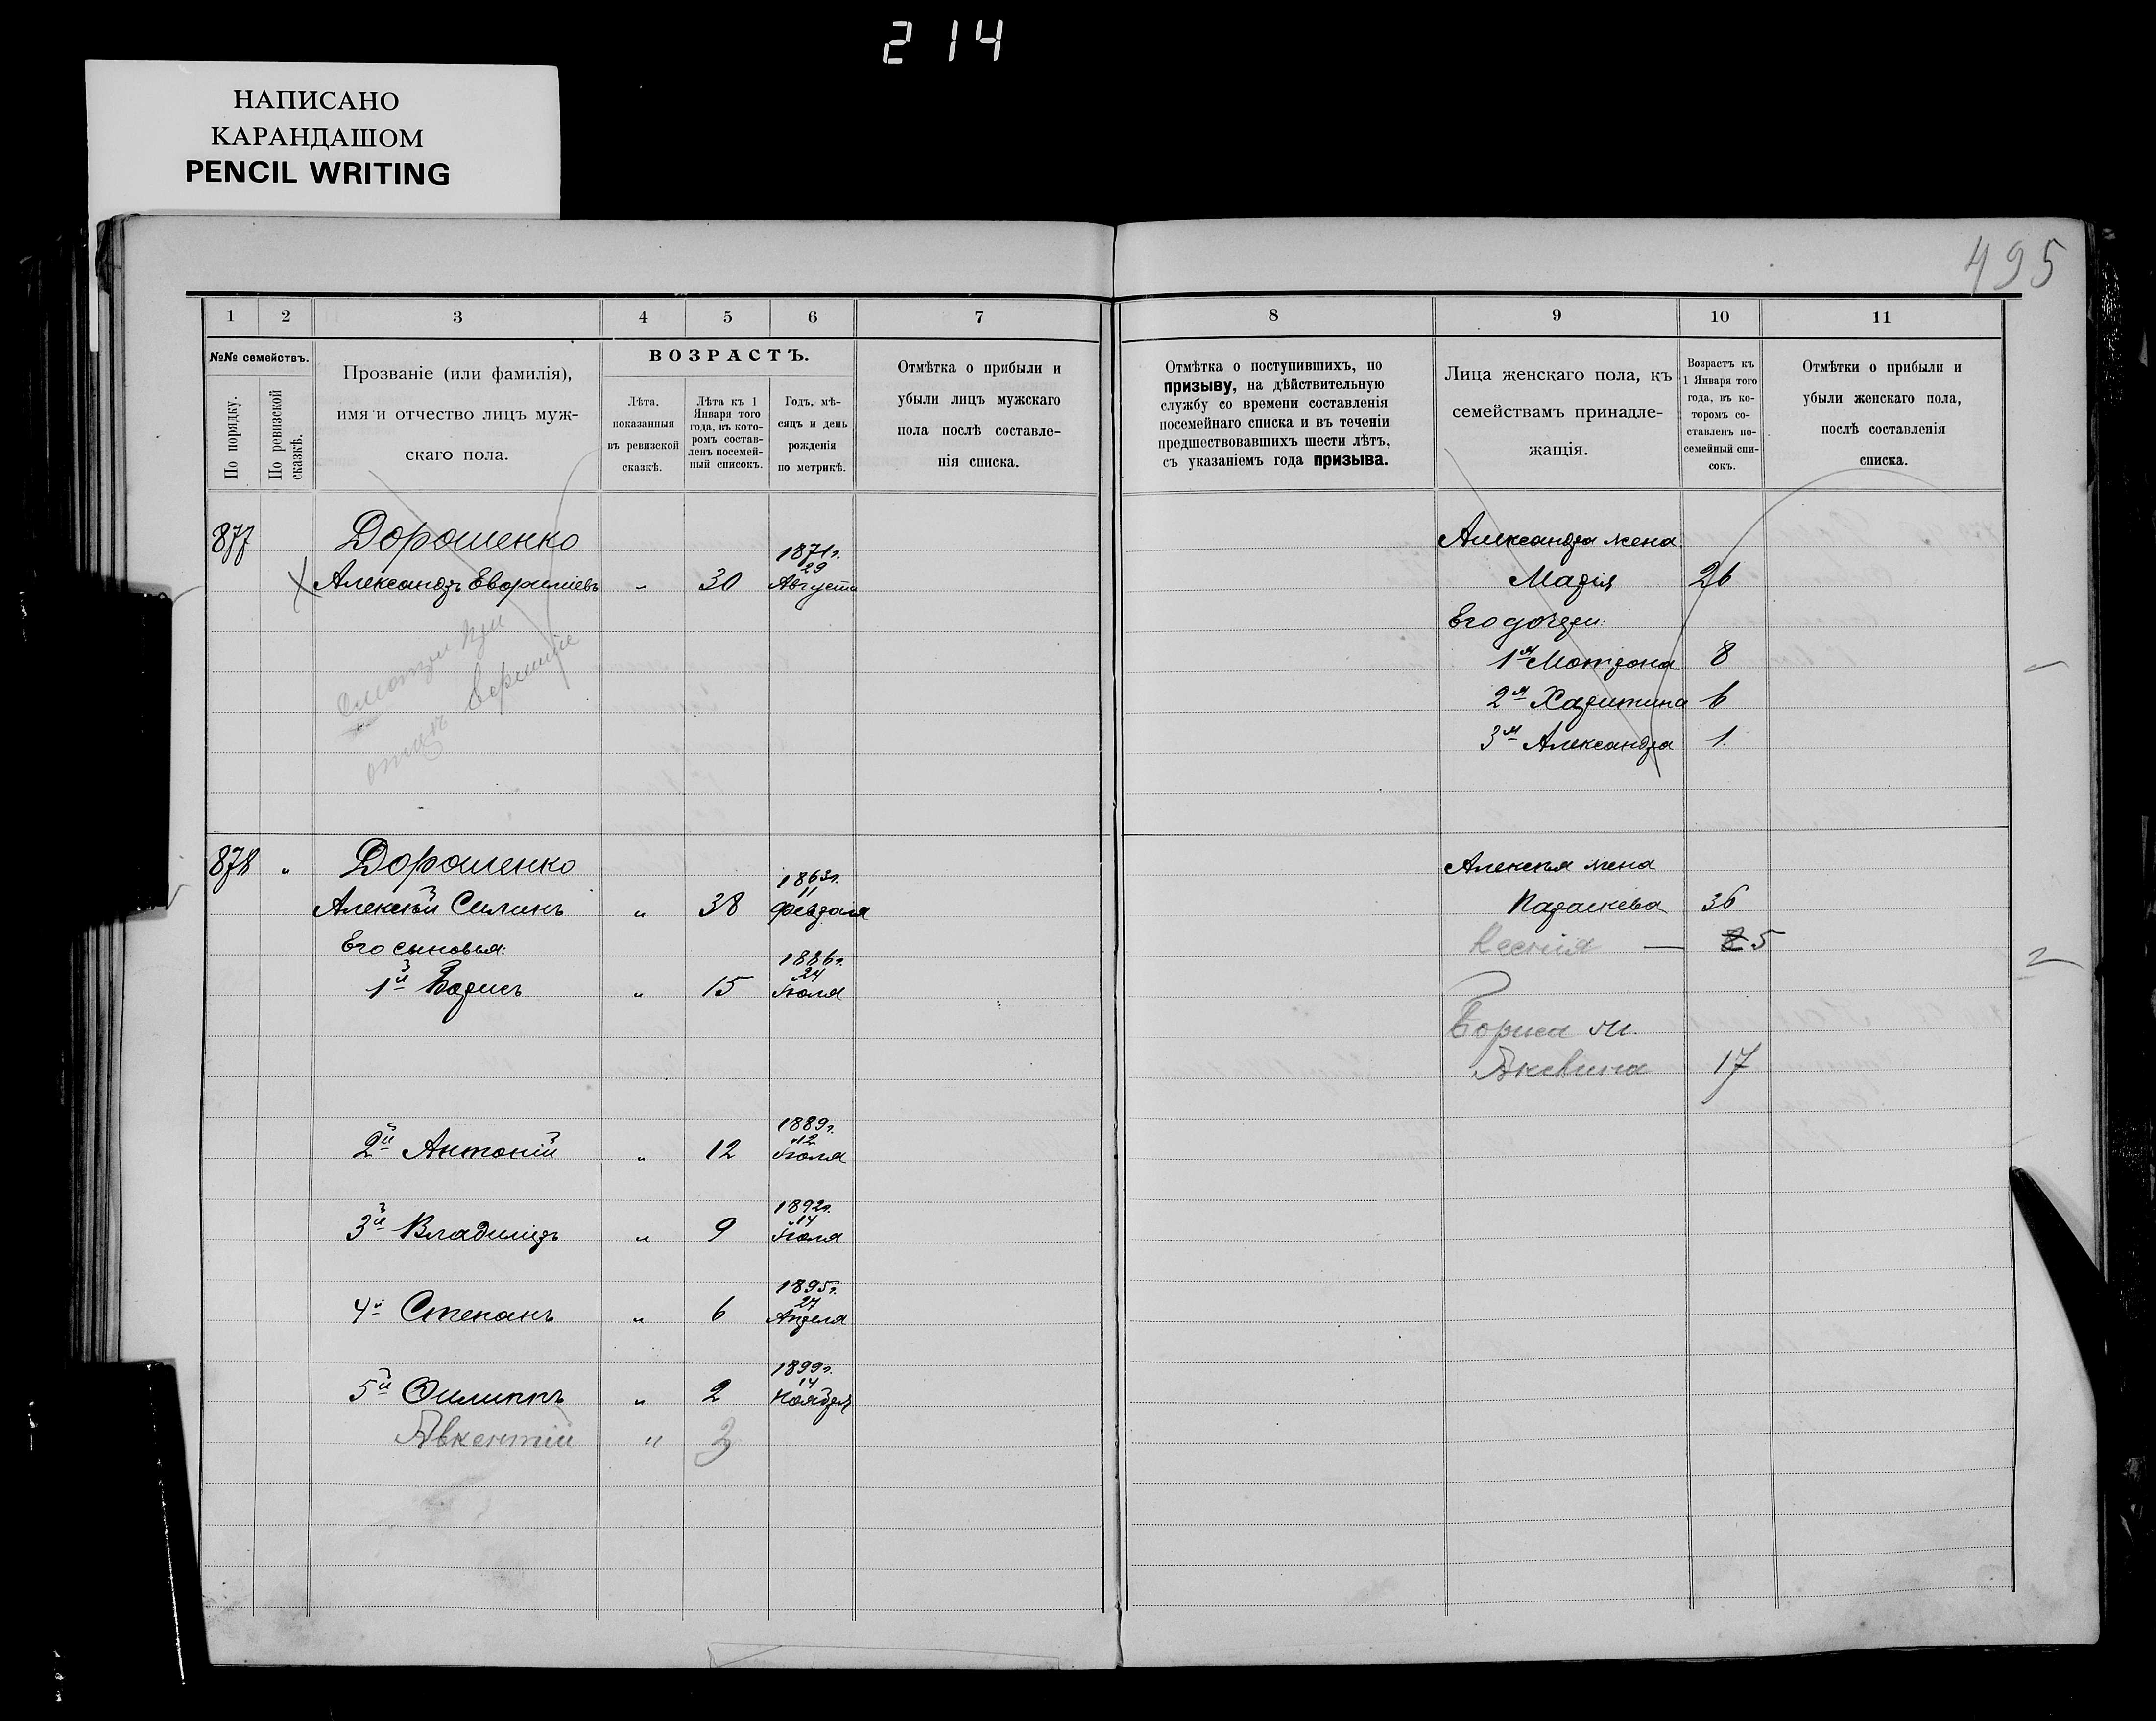 214
НАПИСАНО
КАРАНДАШОМ
PENCIL WRITING
495
1 2 3 4 5 6 7
№№ семействъ.
По порядку.
По ревизской сказкѣ.
Прозваніе (или фамилія),
имя и отчество лицъ муж-
скаго пола.
ВОЗРАСТЪ.
Лѣта,
показанныя
въ ревизской
сказкѣ.
Лѣта къ 1
Января того
года, въ кото-
ромъ состав-
ленъ посемей-
ный списокъ.
Годъ, мѣ-
сяцъ и день
рожденія
по метрикѣ.
Отмѣтка о прибыли и
убыли лицъ мужскаго
пола послѣ составле-
нія списка.
877 Дорошенко
1871г.
29
Александръ - 30 Августа
Смотри при
отцѣ
878 „ Дорошенко
1863г.
11
Алексѣй Силинъ „ 38 Февраля
Его сыновья:
1886г.
24
1й Борисъ „ 15 Іюля
1889г.
12
2й Антоній „ 12 Іюля
1892г.
14
3й Владиміръ „ 9 Іюля
1895г.
27
4й Степанъ „ 6 Апреля
1899г.
14
5й Филиппъ „ 2 Ноября
Авкентій „ 3
8 9 10 11
Отмѣтка о поступившихъ, по
призыву, на дѣйствительную
службу со времени составленія
посемейнаго списка и въ теченіи
предшествовавшихъ шести лѣтъ,
съ указаніемъ года призыва.
Лица женскаго пола, къ
семействамъ принадле-
жащія.
Возрастъ къ
1 Января того
года, въ ко-
торомъ со-
ставленъ по-
семейный спи-
сокъ.
Отмѣтки о прибыли и
убыли женскаго пола,
послѣ составленія
списка.
Александра жена
Марія 26
Его дочери:
1я Мотрона 8
2я Харитина 6
3я Александра 1.
Алексѣя жена
Параскева 36
Ксенія — 5
2
Бориса ж.
17